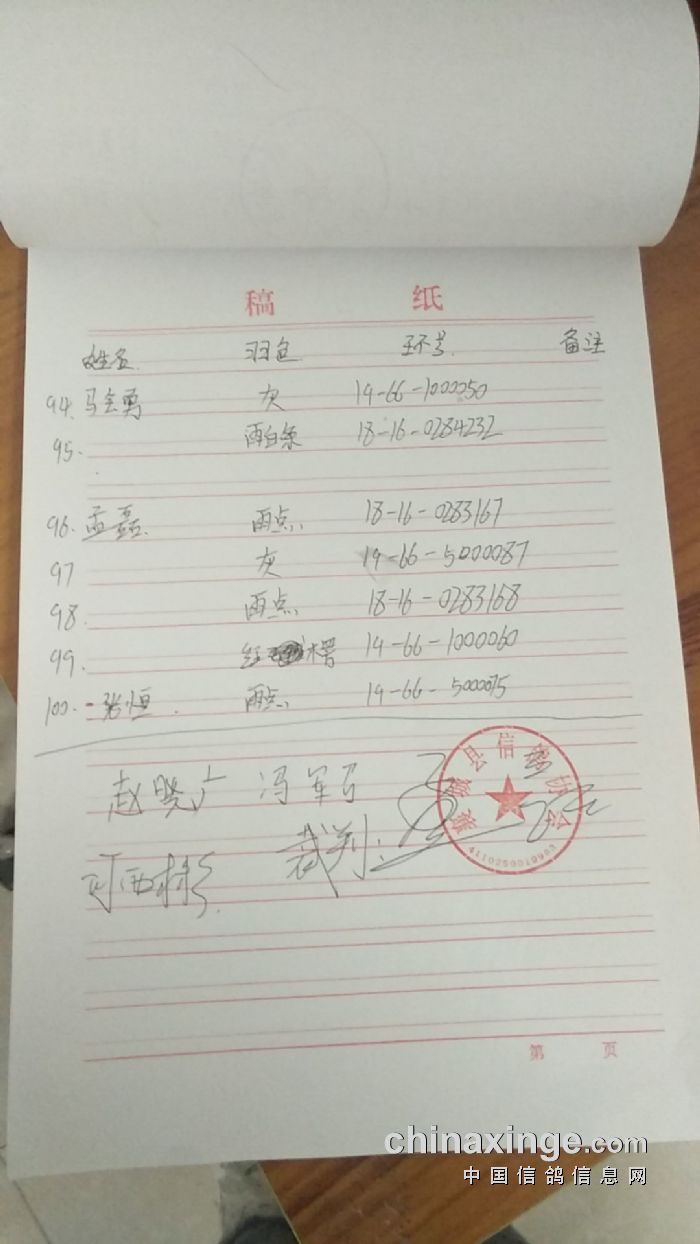 稿 纸
姓名 羽色 环号 备注
94. 马会勇 灰 19-66-1000050
95. 雨白条 18-16-0284232
96. 孟磊 雨点 18-16-0283167
97 灰 19-66-5000087
98. 雨点 18-16-0283168
99. 红 楞 19-66-1000060
100. 张恒 雨点 19-66-5000075
赵晓广 冯军
裁判:
襄城县信鸽协会
4110250019993
第 页
chinaxinge.com
中国信鸽信息网